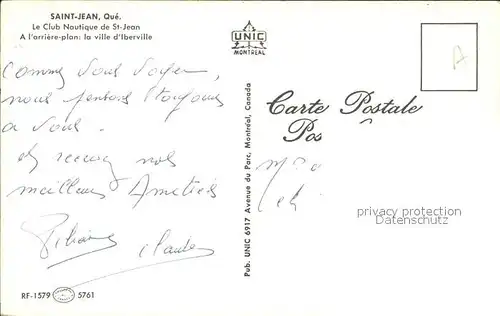 SAINT-JEAN, Qué.
Le Club Nautique de St-Jean
A l'arrière-plan: la ville d'Iberville
UNIC
MONTREAL
A
Comme vous voyez,
nous pensons toujours
a vous.
recevez nos
meilleurs Amitiés
Claude
Carte Postale
Pos
privacy protection
Datenschutz
Pub. UNIC 6917 Avenue du Parc, Montréal, Canada
RF-1579 5761